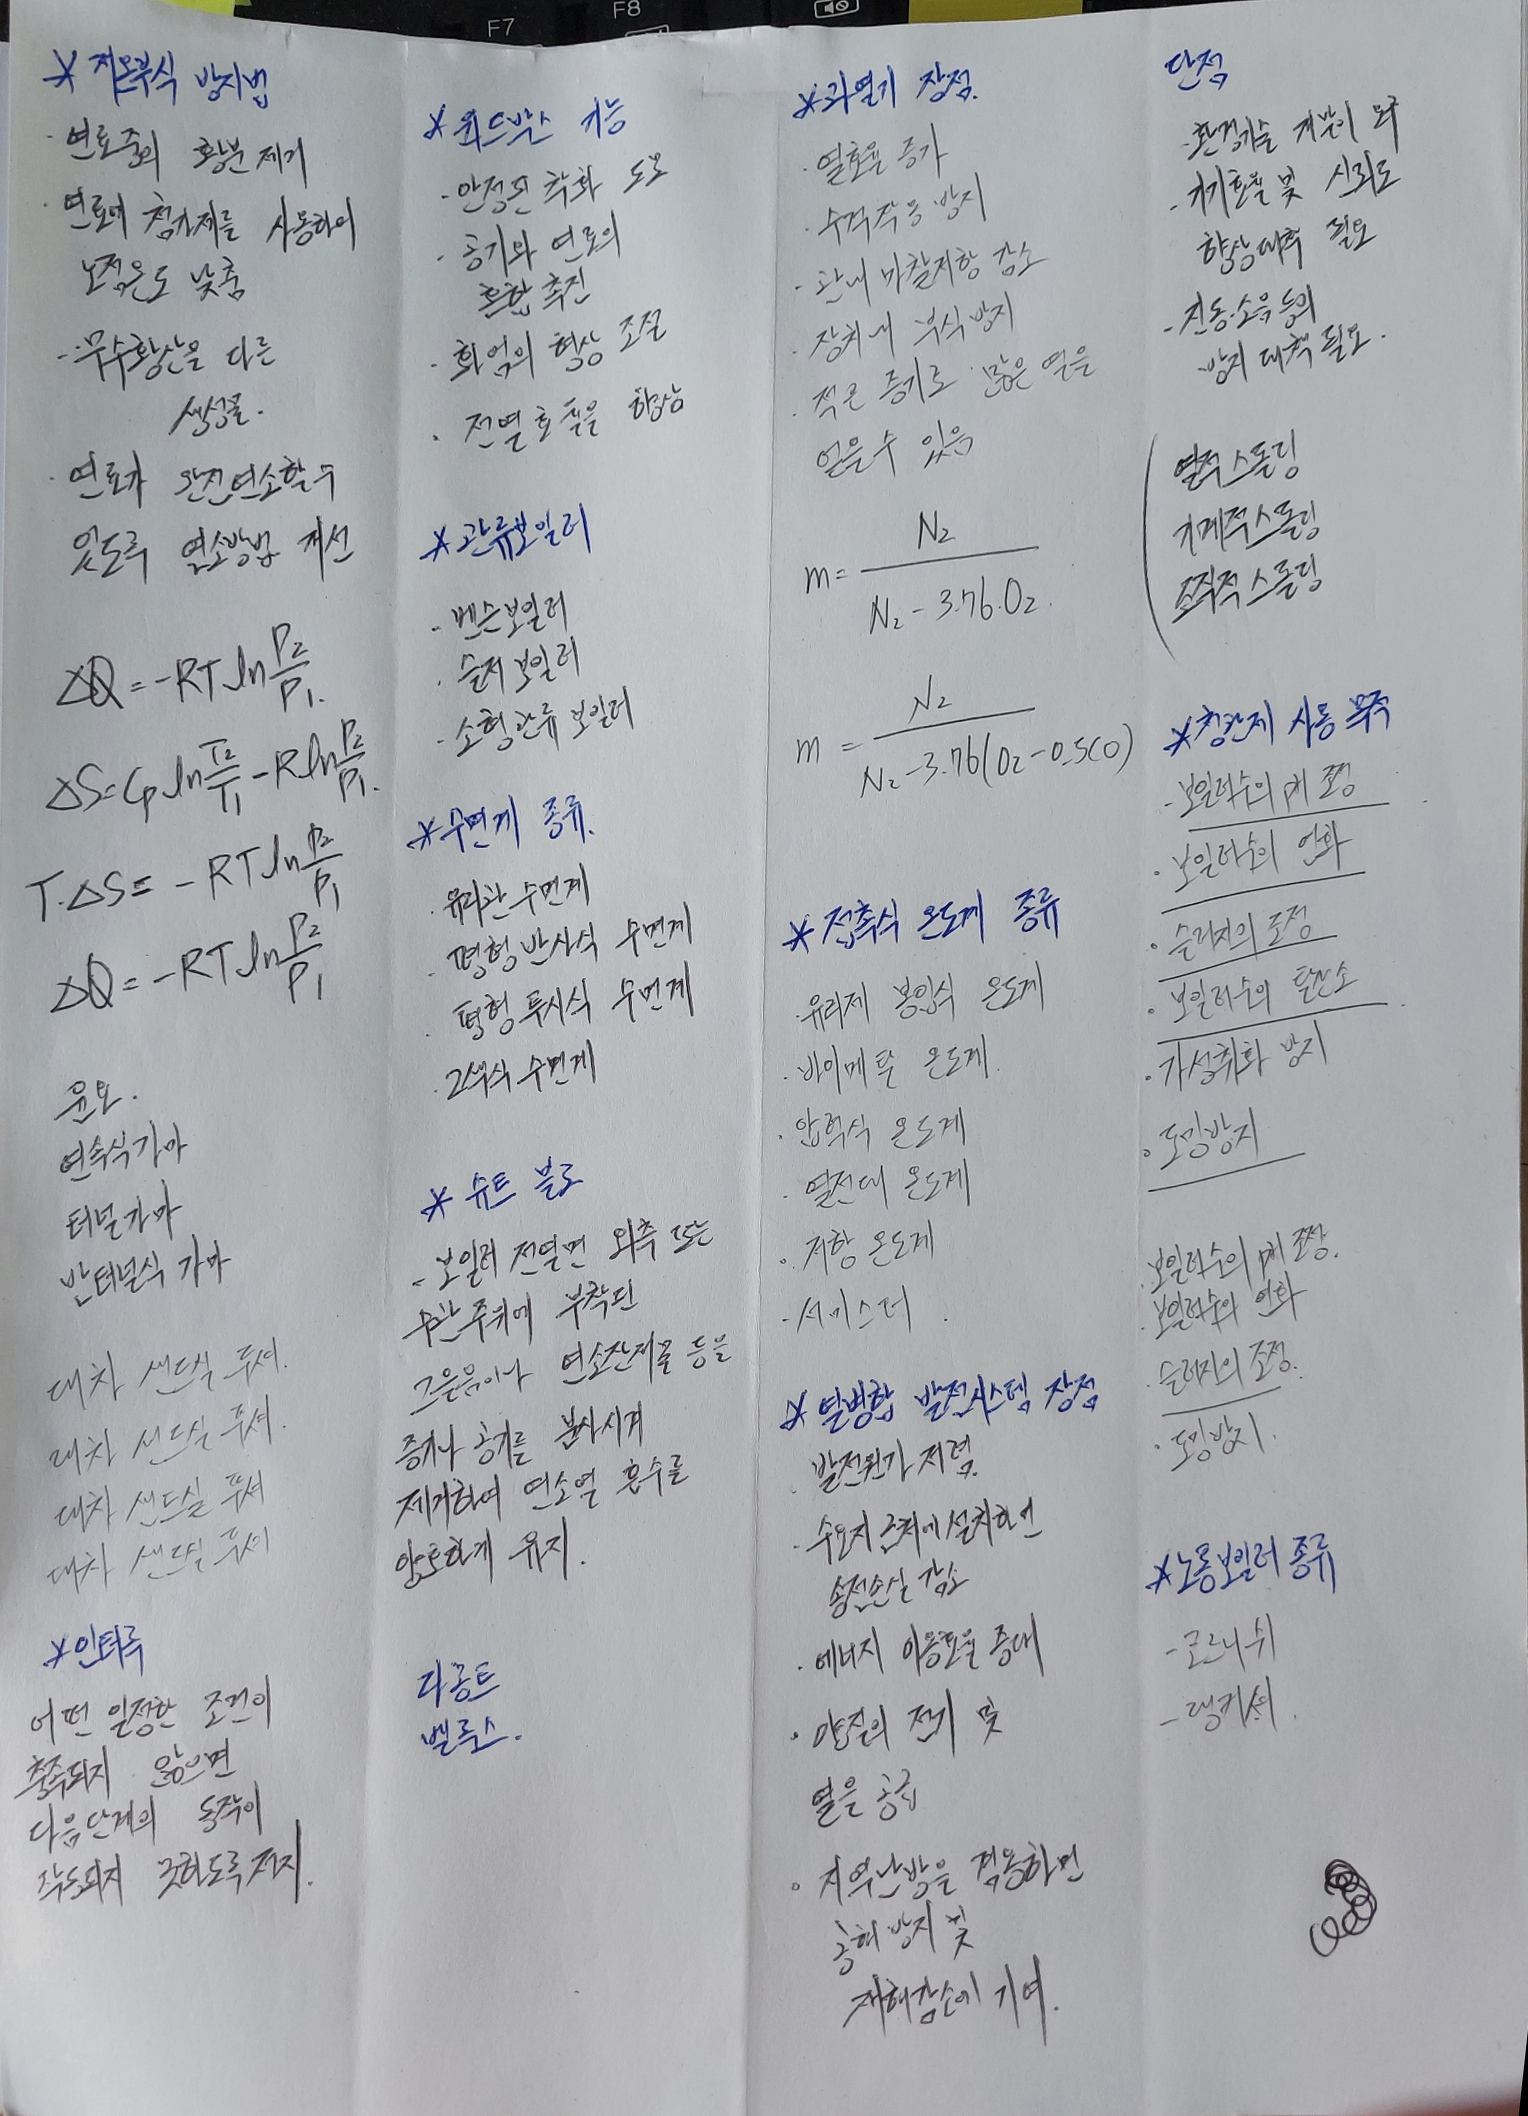 F7
F8
* 저온부식 방지법
· 연료중의 황분 제거
· 연료에 첨가제를 사용하여
노점온도 낮춤
· 무수황산을 다른
생성물.
· 연료가 완전연소할수
있도록 연소방법 개선
ΔQ = -RT ln P2/P1.
ΔS = Cp ln T2/T1 - R ln P2/P1.
T·ΔS = -RT ln P2/P1
ΔQ = -RT ln P2/P1
윤요.
연속식가마
터널가마
반터널식 가마
대차 샌드실 푸셔.
대차 샌드실 푸셔.
대차 샌드실 푸셔
대차 샌드실 푸셔
* 인터록
어떤 일정한 조건이
충족되지 않으면
다음단계의 동작이
작동되지 못하도록 저지.
* 윈드박스 기능
· 안정된 착화 도모
· 공기와 연료의
혼합 촉진
· 화염의 형상 조절
· 전열효율을 향상
* 관류보일러
· 벤슨보일러
· 슬저보일러
· 소형관류 보일러
* 수면계 종류.
· 유리관수면계
· 평형반사식 수면계
· 평형투시식 수면계
· 2색식 수면계
* 슈트 블로
- 보일러 전열면 외측 또는
수관주위에 부착된
그을음이나 연소잔재물 등을
증기나 공기를 분사시켜
제거하여 연소열 흡수를
양호하게 유지.
다쿵트
벨룩스.
* 과열기 장점.
· 열효율 증가
· 수격작용 방지
· 관내 마찰저항 감소
· 장치내 부식방지
· 적은 증기로 많은 열을
얻을수 있음
m = N2 / N2 - 3.76.O2.
m = N2 / N2 - 3.76(O2 - 0.5CO)
* 접촉식 온도계 종류
· 유리제 봉입식 온도계
· 바이메탈 온도계.
· 압력식 온도계
· 열전대 온도계
· 저항 온도계
· 서미스터.
* 열병합 발전시스템 장점
· 발전원가 저렴.
· 수요지 근처에 설치하면
송전손실 감소
· 에너지 이용효율 증대
· 양질의 전기 및
열을 공급
· 지역난방을 적용하면
공해방지 및
재해감소에 기여.
단점
· 환경기술 개발이 요구
· 기기효율 및 신뢰도
향상대책 필요
- 진동·소음등의
방지 대책 필요.
열적스폴링
기계적스폴링
조직적스폴링
* 청관제 사용 목적
- 보일러수의 pH 조정
· 보일러수의 연화
· 슬러지의 조정
· 보일러수의 탈산소
· 가성취화 방지
· 포밍방지
· 보일러수의 pH 조정.
· 보일러수의 연화
· 슬러지의 조정.
· 포밍방지.
* 노통보일러 종류
- 코르니쉬
- 랭커셔.